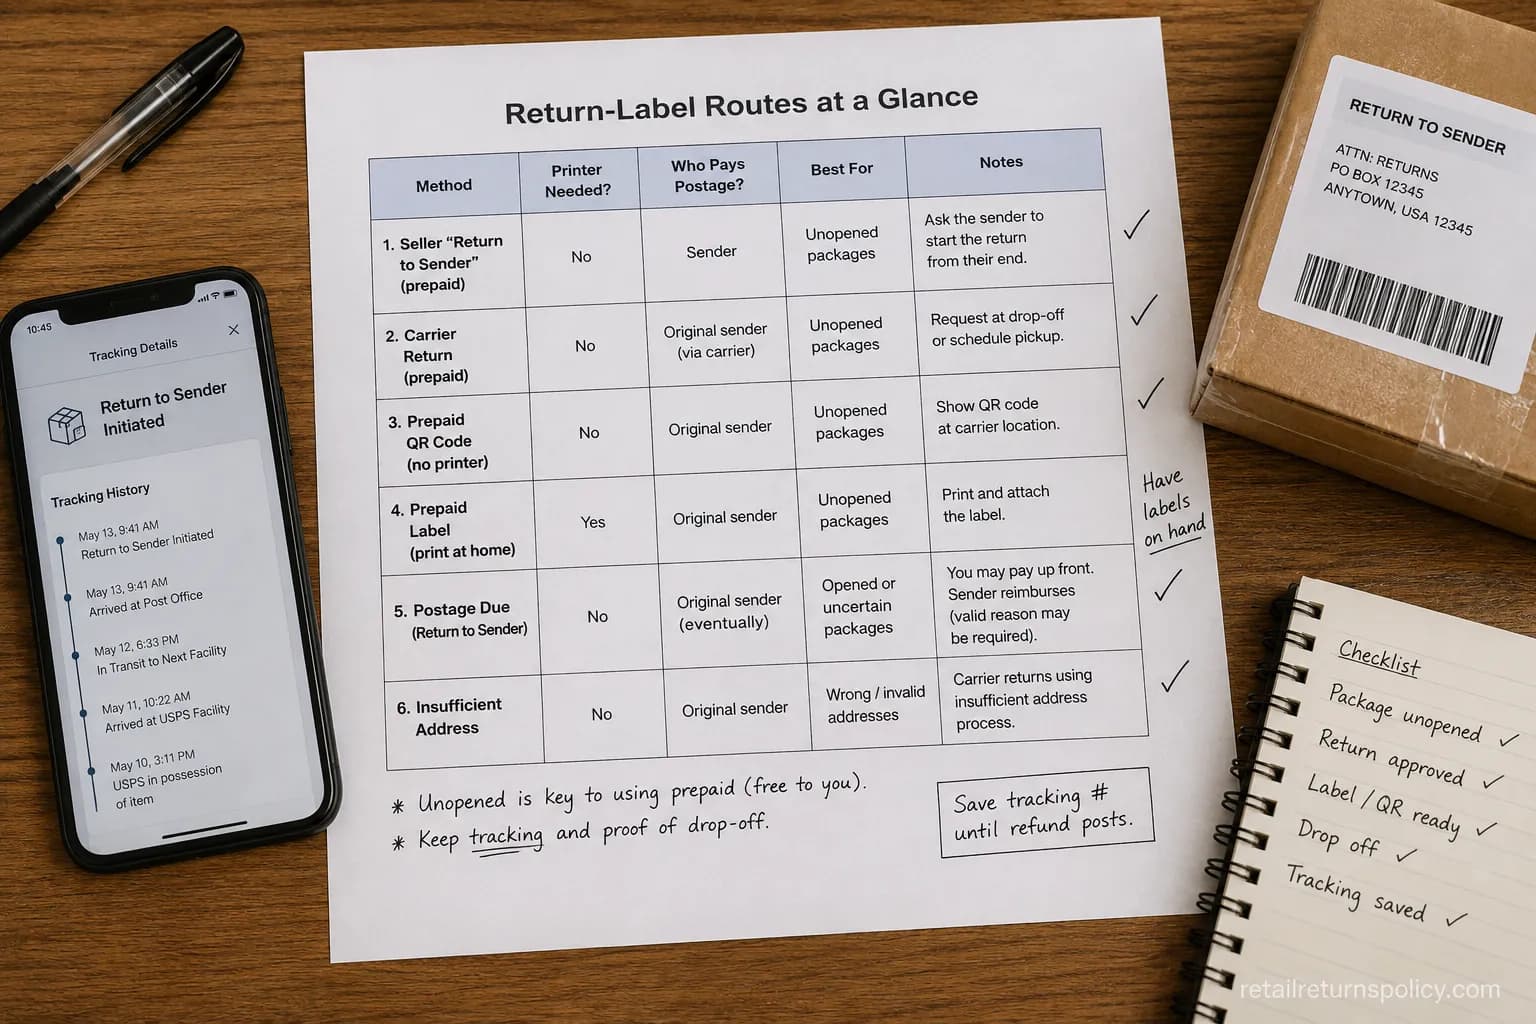 Return-Label Routes at a Glance
Method
Printer
Needed?
Who Pays
Postage?
Best For
Notes
1. Seller “Return
to Sender”
(prepaid)
No
Sender
Unopened
packages
Ask the sender to
start the return
from their end.
✓
2. Carrier
Return
(prepaid)
No
Original sender
(via carrier)
Unopened
packages
Request at drop-off
or schedule pickup.
✓
3. Prepaid
QR Code
(no printer)
No
Original sender
Unopened
packages
Show QR code
at carrier location.
✓
4. Prepaid
Label
(print at home)
Yes
Original sender
Unopened
packages
Print and attach
the label.
Have
labels
on hand
5. Postage Due
(Return to Sender)
No
Original sender
(eventually)
Opened or
uncertain
packages
You may pay up front.
Sender reimburses
(valid reason may
be required).
✓
6. Insufficient
Address
No
Original sender
Wrong / invalid
addresses
Carrier returns using
insufficient address
process.
✓
* Unopened is key to using prepaid (free to you).
* Keep tracking and proof of drop-off.
Save tracking #
until refund posts.
10:45
Tracking Details
Return to Sender
Initiated
Tracking History
May 13, 9:41 AM
Return to Sender Initiated
May 13, 9:41 AM
Arrived at Post Office
May 12, 6:33 PM
In Transit to Next Facility
May 11, 10:22 AM
Arrived at USPS Facility
May 10, 3:11 PM
USPS in possession
of item
RETURN TO SENDER
ATTN: RETURNS
PO BOX 12345
ANYTOWN, USA 12345
Checklist
Package unopened ✓
Return approved ✓
Label / QR ready ✓
Drop off ✓
Tracking saved ✓
retailreturnspolicy.com